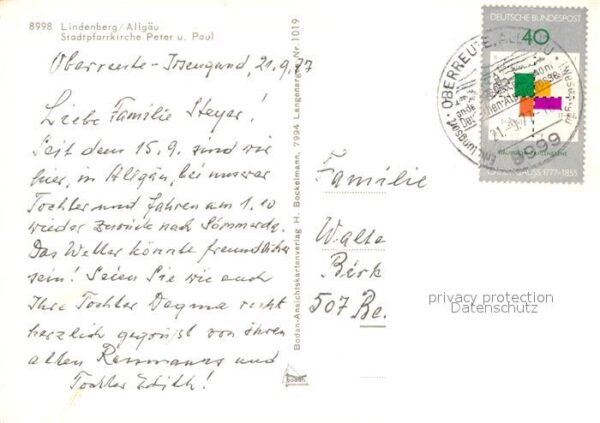 8998 Lindenberg/Allgäu
Stadtpfarrkirche Peter u. Paul
Oberreute-Irsengund, 21.9.77
Liebe Familie Steyer!
Seit dem 15.9. sind wir
hier, in Allgäu, bei unserer
Tochter und fahren am 1.10
wieder zurück nach Sömmerda.
Das Wetter könnte freundlicher
sein! Seien Sie wie auch
Ihre Tochter Dagma recht
herzlich gegrüsst von ihren
alten Ressmanns und
Tochter Edith!
Bodan-Ansichtskartenverlag H. Bockelmann, 7994 Langenargen Nr. 1019
bodan
DEUTSCHE BUNDESPOST
40
GAUSS 1777-1855
OBERREUTE, ALLGÄU
21.9.77
8999
Familie
Walte
Birk
507 Be.
privacy protection
Datenschutz